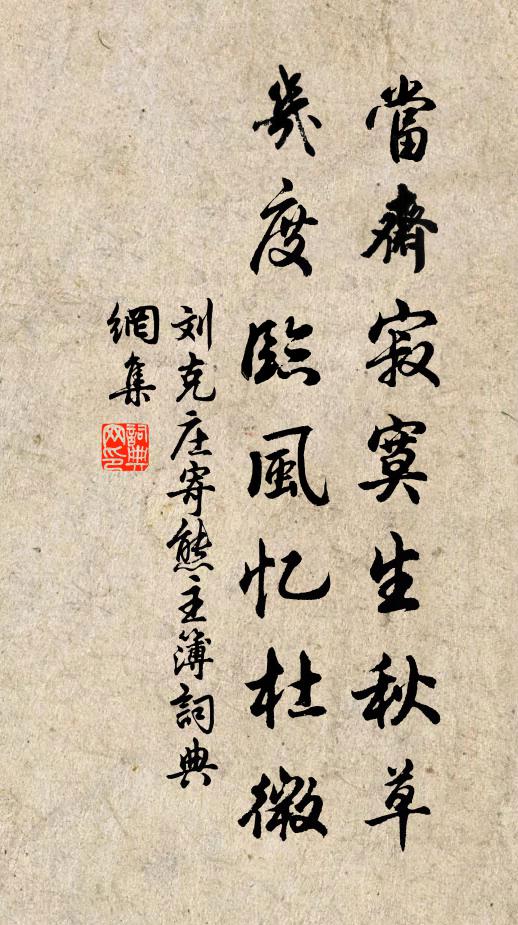 當齋寂寞生秋草
幾度臨風忆杜微
刘克庄寄熊主簿詞典
網集
詞典网印